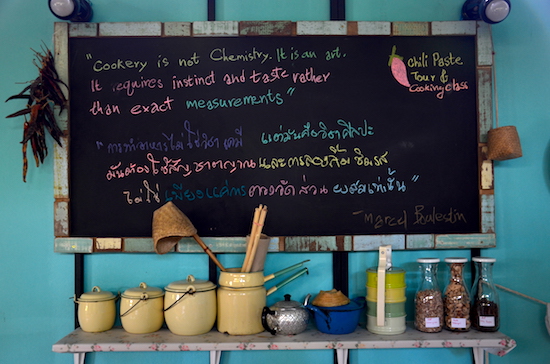 "Cookery is not Chemistry. It is an art.
It requires instinct and taste rather
than exact measurements"
Chili Paste
Tour &
Cooking class
"การทำอาหารไม่ใช่วิชาเคมี แต่มันคือวิชาศิลปะ
มันต้องใช้สัญชาตญาณและการลองลิ้มชิมรส
ไม่ใช่เพียงแค่การตวงวัดส่วนผสมเท่านั้น"
- Marcel Boulestin